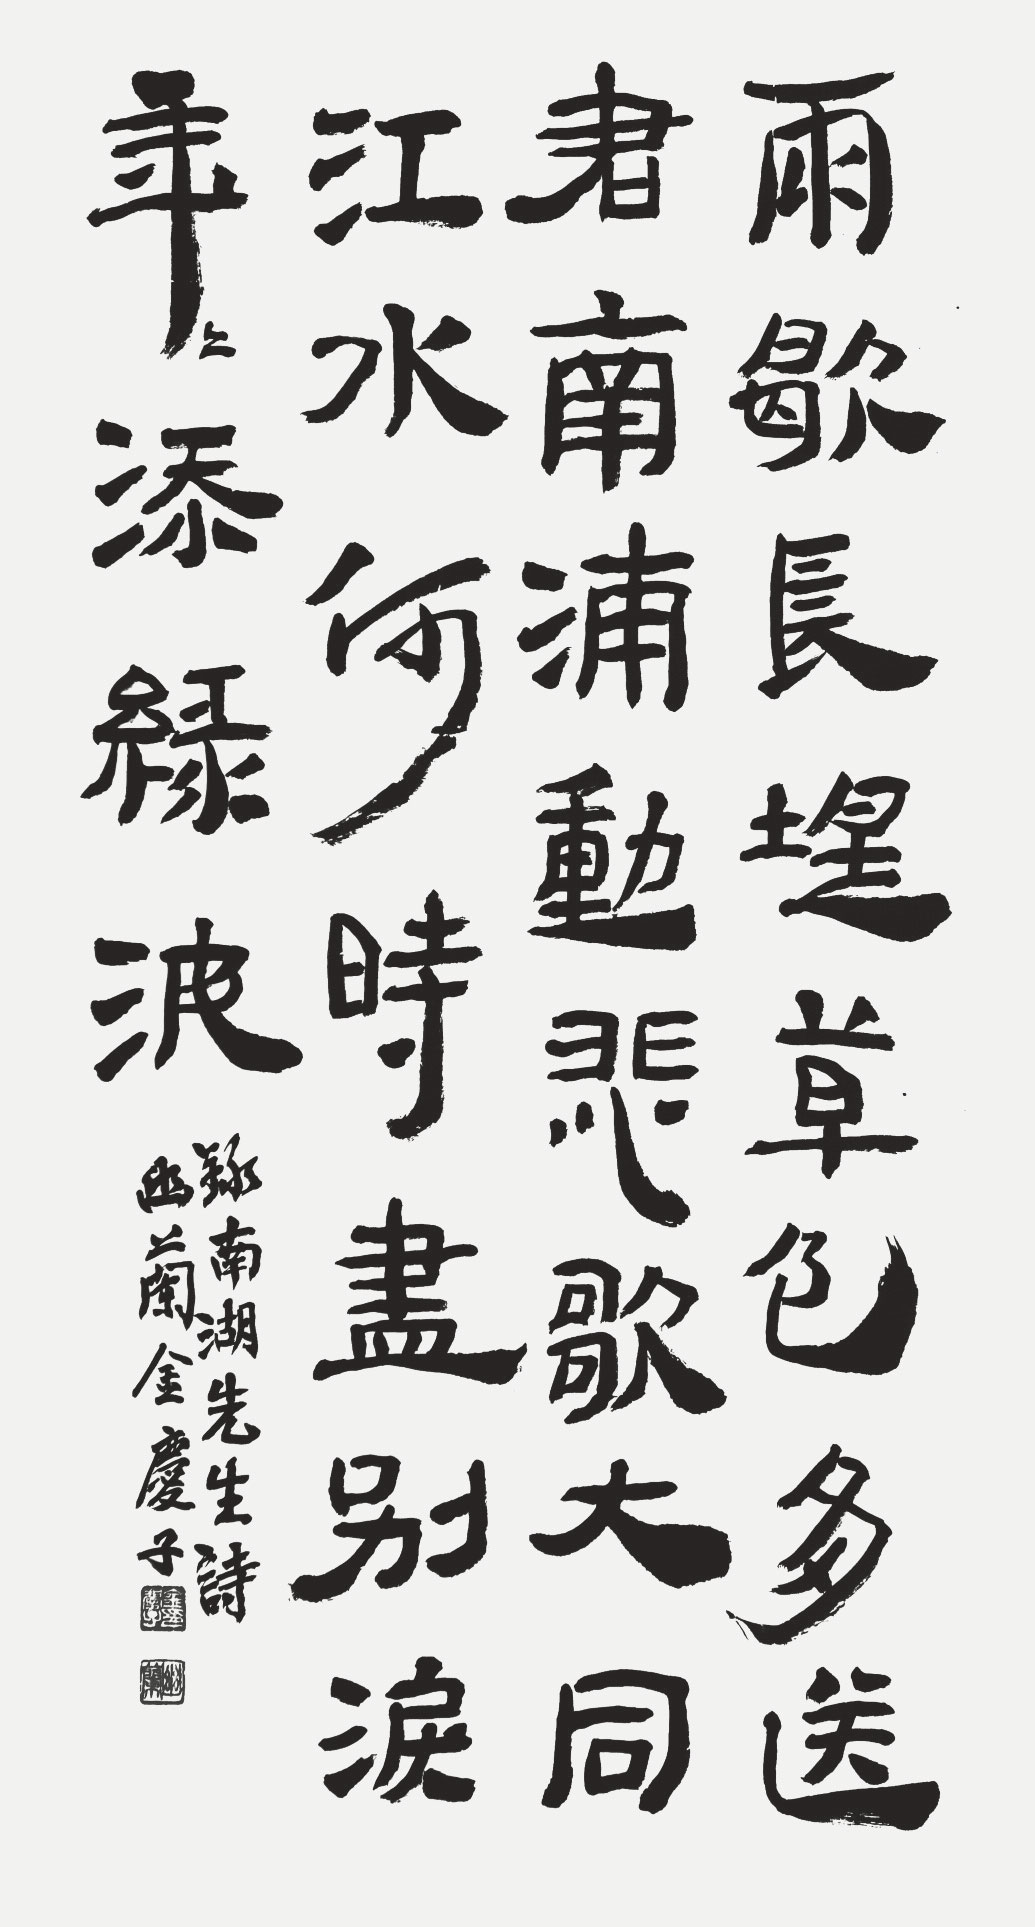 雨歇長堤草色多送
君南浦動悲歌大同
江水何時盡別淚
年々添綠波
錄南湖先生詩
幽蘭金慶子
幽蘭